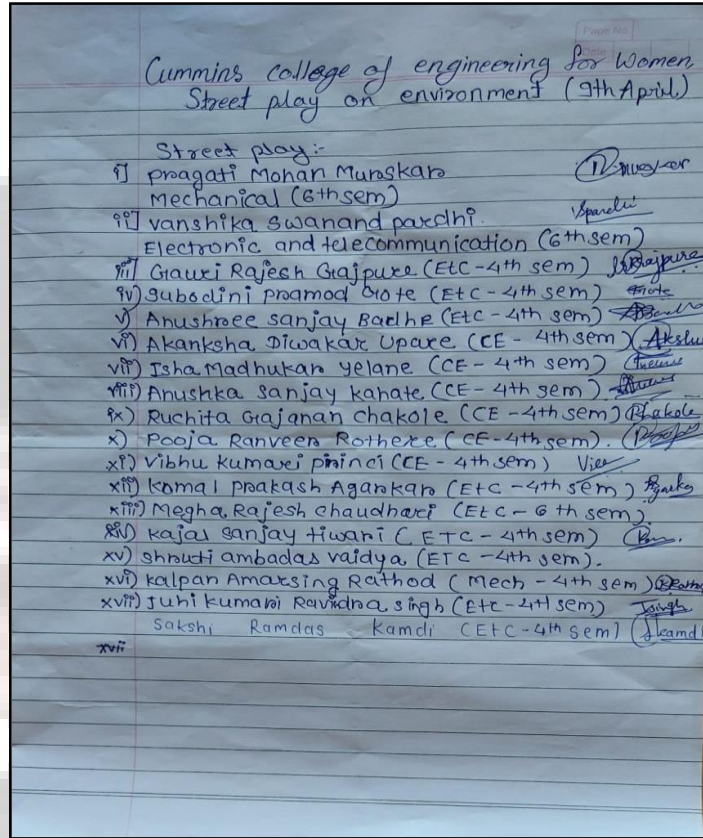 Page No.
Date
Cummins college of engineering for Women,
Street play on environment (9th April)
Street play:-
i] pragati Mohan Muraskar
Mechanical (6th sem)
ii] vanshika swanand pardhi.
Electronic and telecommunication (6th sem)
iii) Gauri Rajesh Gajpure (EtC-4th sem) Gajpure
iv) Subodini pramod Gote (EtC-4th sem) Gote
v) Anushree sanjay Badhe (EtC-4th sem)
vi) Akanksha Diwakar Upare (CE - 4th sem) Akshu
vii) Isha Madhukar yelane (CE - 4th sem)
viii) Anushka sanjay kahate (CE - 4th sem).
ix) Ruchita Gajanan chakole (CE - 4th sem) Rhakole
x) Pooja Ranveer Rothere (CE-4th sem). Pooja
xi) vibhu kumari princi (CE - 4th sem)
xii) komal prakash Agarkar (EtC - 4th sem)
xiii) Megha Rajesh chaudhari (EtC - 6 th sem)
xiv) kajal sanjay tiwari (ETC - 4th sem)
xv) shruti ambadas vaidya (ETC - 4th sem).
xvi) kalpan Amarsing Rathod (Mech - 4th sem)
xvii) Juhi kumari Ravindra singh (Etc - 4th sem) Jsingh
Sakshi Ramdas Kamdi (EtC-4th sem) Skamdi
xvii